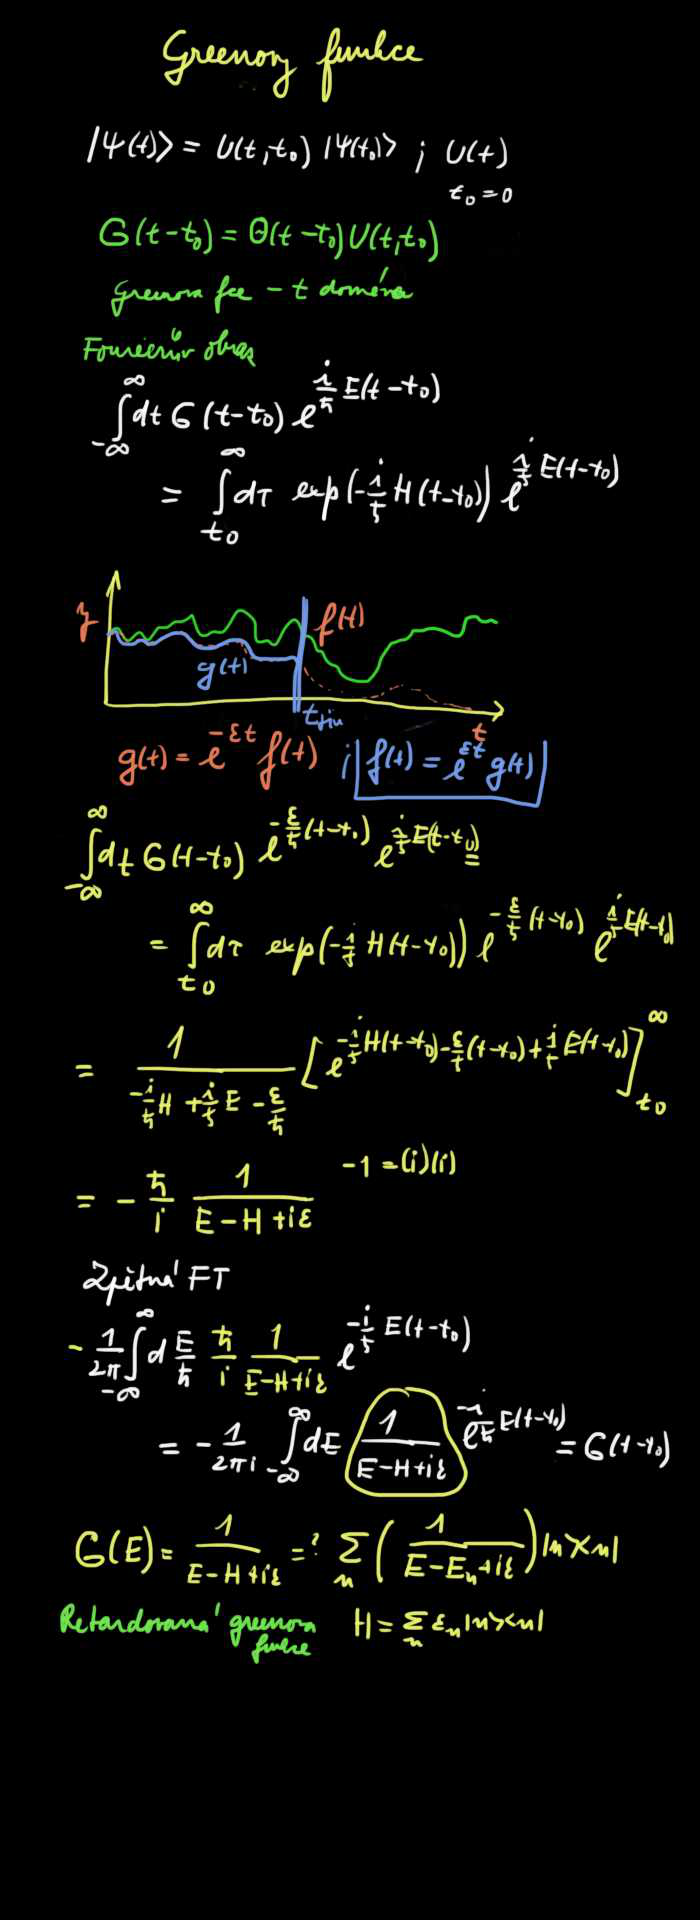 Greenovy funkce
|Ψ(t)> = U(t,t₀) |Ψ(t₀)> ; U(t)
t₀=0
G(t-t₀) = Θ(t-t₀)U(t,t₀)
greenova fce - t doména
Fourierův obraz
∫_{-∞}^{∞} dt G(t-t₀) e^{i/ħ E(t-t₀)}
= ∫_{t₀}^{∞} dτ exp(-i/ħ H(t-t₀)) e^{i/ħ E(t-t₀)}
y
f(t)
g(t)
t_fin
t
g(t) = e^{-εt} f(t) ; f(t) = e^{εt} g(t)
∫_{-∞}^{∞} dt G(t-t₀) e^{-ε/ħ (t-t₀)} e^{i/ħ E(t-t₀)}
= ∫_{t₀}^{∞} dτ exp(-i/ħ H(t-t₀)) e^{-ε/ħ (t-t₀)} e^{i/ħ E(t-t₀)}
= 1/(-i/ħ H + i/ħ E - ε/ħ) [e^{-i/ħ H(t-t₀) - ε/ħ (t-t₀) + i/ħ E(t-t₀)}]_{t₀}^{∞}
-1 = (i)(i)
= - ħ/i 1/(E-H+iε)
Zpětná FT
- 1/2π ∫_{-∞}^{∞} d E/ħ ħ/i 1/(E-H+iε) e^{-i/ħ E(t-t₀)}
= - 1/2πi ∫_{-∞}^{∞} dE 1/(E-H+iε) e^{-i/ħ E(t-t₀)} = G(t-t₀)
G(E) = 1/(E-H+iε) =? Σ_n (1/(E-E_n+iε)) |n><n|
Retardovaná greenova funkce
H = Σ_n ε_n |n><n|